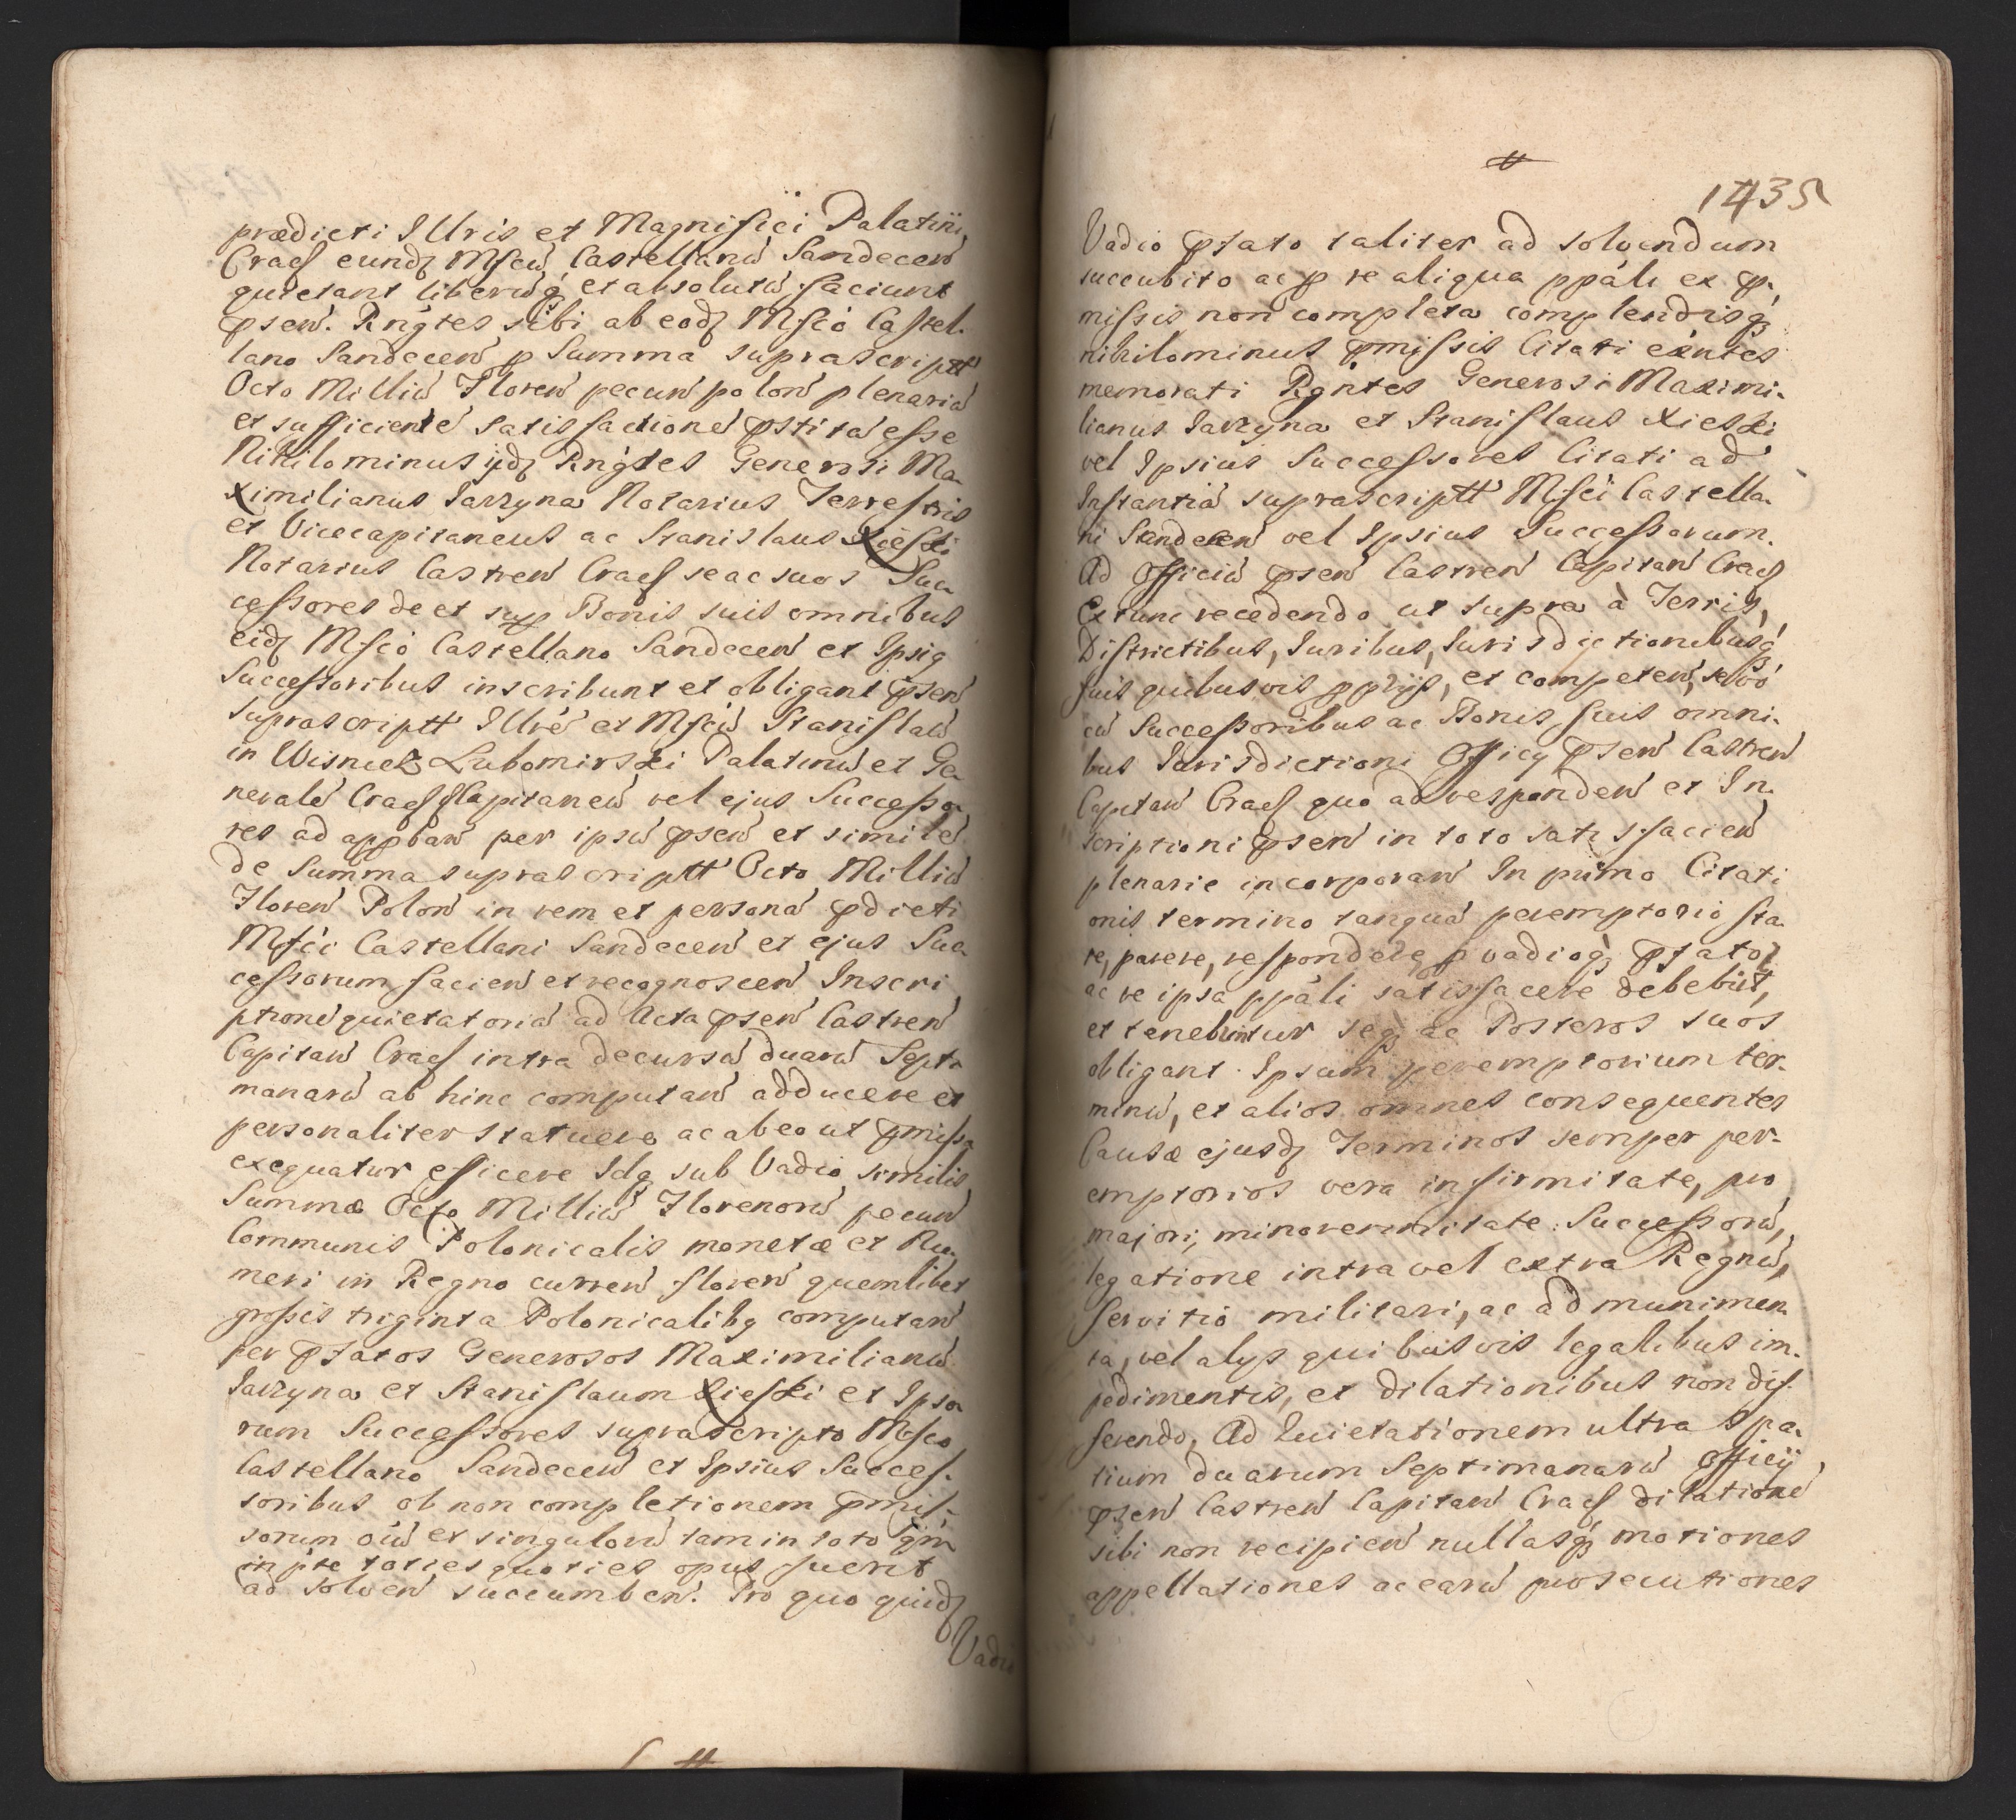 prædicti Illris et Magnifici Palatini
Cracſ eundʒ Mfcū Castellanū Sandecen̄
quietant liberūq́ et absolutū faciunt
pſen̄. Rngtes sibi ab eodʒ Mfco Castel-
lano Sandecen̄ p Summa suprascriptt
Octo Milliū Floren̄ pecun̄ polon̄ plenariā
et sufficientē satisfactionē pstitā esse
Nihilominus ijdʒ Rngtes Generosi Ma-
ximilianus Jarzyna Notarius Terrestris
et Vicecapitaneus ac Stanislaus Xięski
Notarius Castren̄ Cracſ se ac suos Suc-
cessores de et sup Bonis suis omnibus
eidʒ Mfco Castellano Sandecen̄ et Ipsiq
Successoribus inscribunt et obligant pſen̄
suprascriptt Illrē et Mfcū Stanislaū
in Wisnicz Lubomirski Palatinū et Ge-
neralē Cracſ Capitaneū vel ejus Successo-
res ad appban̄ per ipsū pſen̄ et similē
de Summa suprascriptt Octo Milliū
Floren̄ Polon̄ in rem et personā pdicti
Mfci Castellani Sandecen̄ et ejus Suc-
cessorum facien̄ et recognoscen̄ Inscri
ptionē quietatoriā ad Acta pſen̄ Castren̄
Capitan̄ Cracſ intra decursū duarū Septi
manarū ab hinc computan̄ adducere et
personaliter statuere ac ab eo ut pmissa
exequatur efficere Idq sub Vadio similis
Summæ Octo Milliū Florenorū pecun̄
Communis Polonicalis monetæ et Nu-
meri in Regno curren̄ floren̄ quemlibet
grossis triginta Polonicalibq computan̄
per pfatos Generosos Maximilianū
Jarzyna et Stanislaum Xięski et Ipso-
rum Successores suprascripto Mfco
Castellano Sandecen̄ et Ipsius Succes-
soribus ob non completionem pmis-
sorum oīū et singulorū tam in toto q̄m
in pte toties quoties opus fuerit
ad solven̄ succumben̄. Pro quo quidʒ
Vadio
1435
Vadio pfato taliter ad solvendum
succubito ac p re aliqua ppāli ex p-
missis non completa complendisqʒ
nihilominus pmissis Citati exn̄tes
memorati Rgntes Generosi Maximi-
lianus Jarzyna et Stanislaus Xieski
vel Ipsius Successores Citati ad
Instantiā suprascriptt Mfci Castella-
ni Sandecen̄ vel Ipsius Successorum.
Ad Officiū pſen̄ Castren̄ Capitan̄ Cracſ
Extunc recedendo ut supra à Terris,
Districtibus, Juribus, Jurisdictionibusq́
suis quibusvis pprijs, et competen̄, se vō
cū Successoribus ac Bonis suis omni-
bus Jurisdictioni Officij pſen̄ Castren̄
Capitan̄ Cracſ quo ad responden̄ et In-
scriptioni pſen̄ in toto satisfacien̄
plenarie incorporan̄ In primo Citati
onis termino tanquā peremptorio sta-
re, parere, respondere p vadioqʒ pfato
ac re ipsa ppāli satisfacere debebūt,
et tenebuntur seqʒ ac Posteros suos
obligant. Ipsum peremptorium ter-
minū, et alios omnes consequentes
Causæ ejusdʒ Terminos semper per-
emptorios vera infirmitate, pro
majori, minoreunitate Successorū,
legatione intra vel extra Regnū,
servitio militari, ac ad munimen-
ta, vel alijs quibusvis legalibus im-
pedimentis, et dilationibus non dif-
ferendo, Ad Quietationem ultra spa-
tium duarum Septimanarū Officij
pſen̄ Castren̄ Capitan̄ Cracſ dilationē
sibi non recipien̄ nullasqʒ motiones
appellationes ac earū prosecutiones